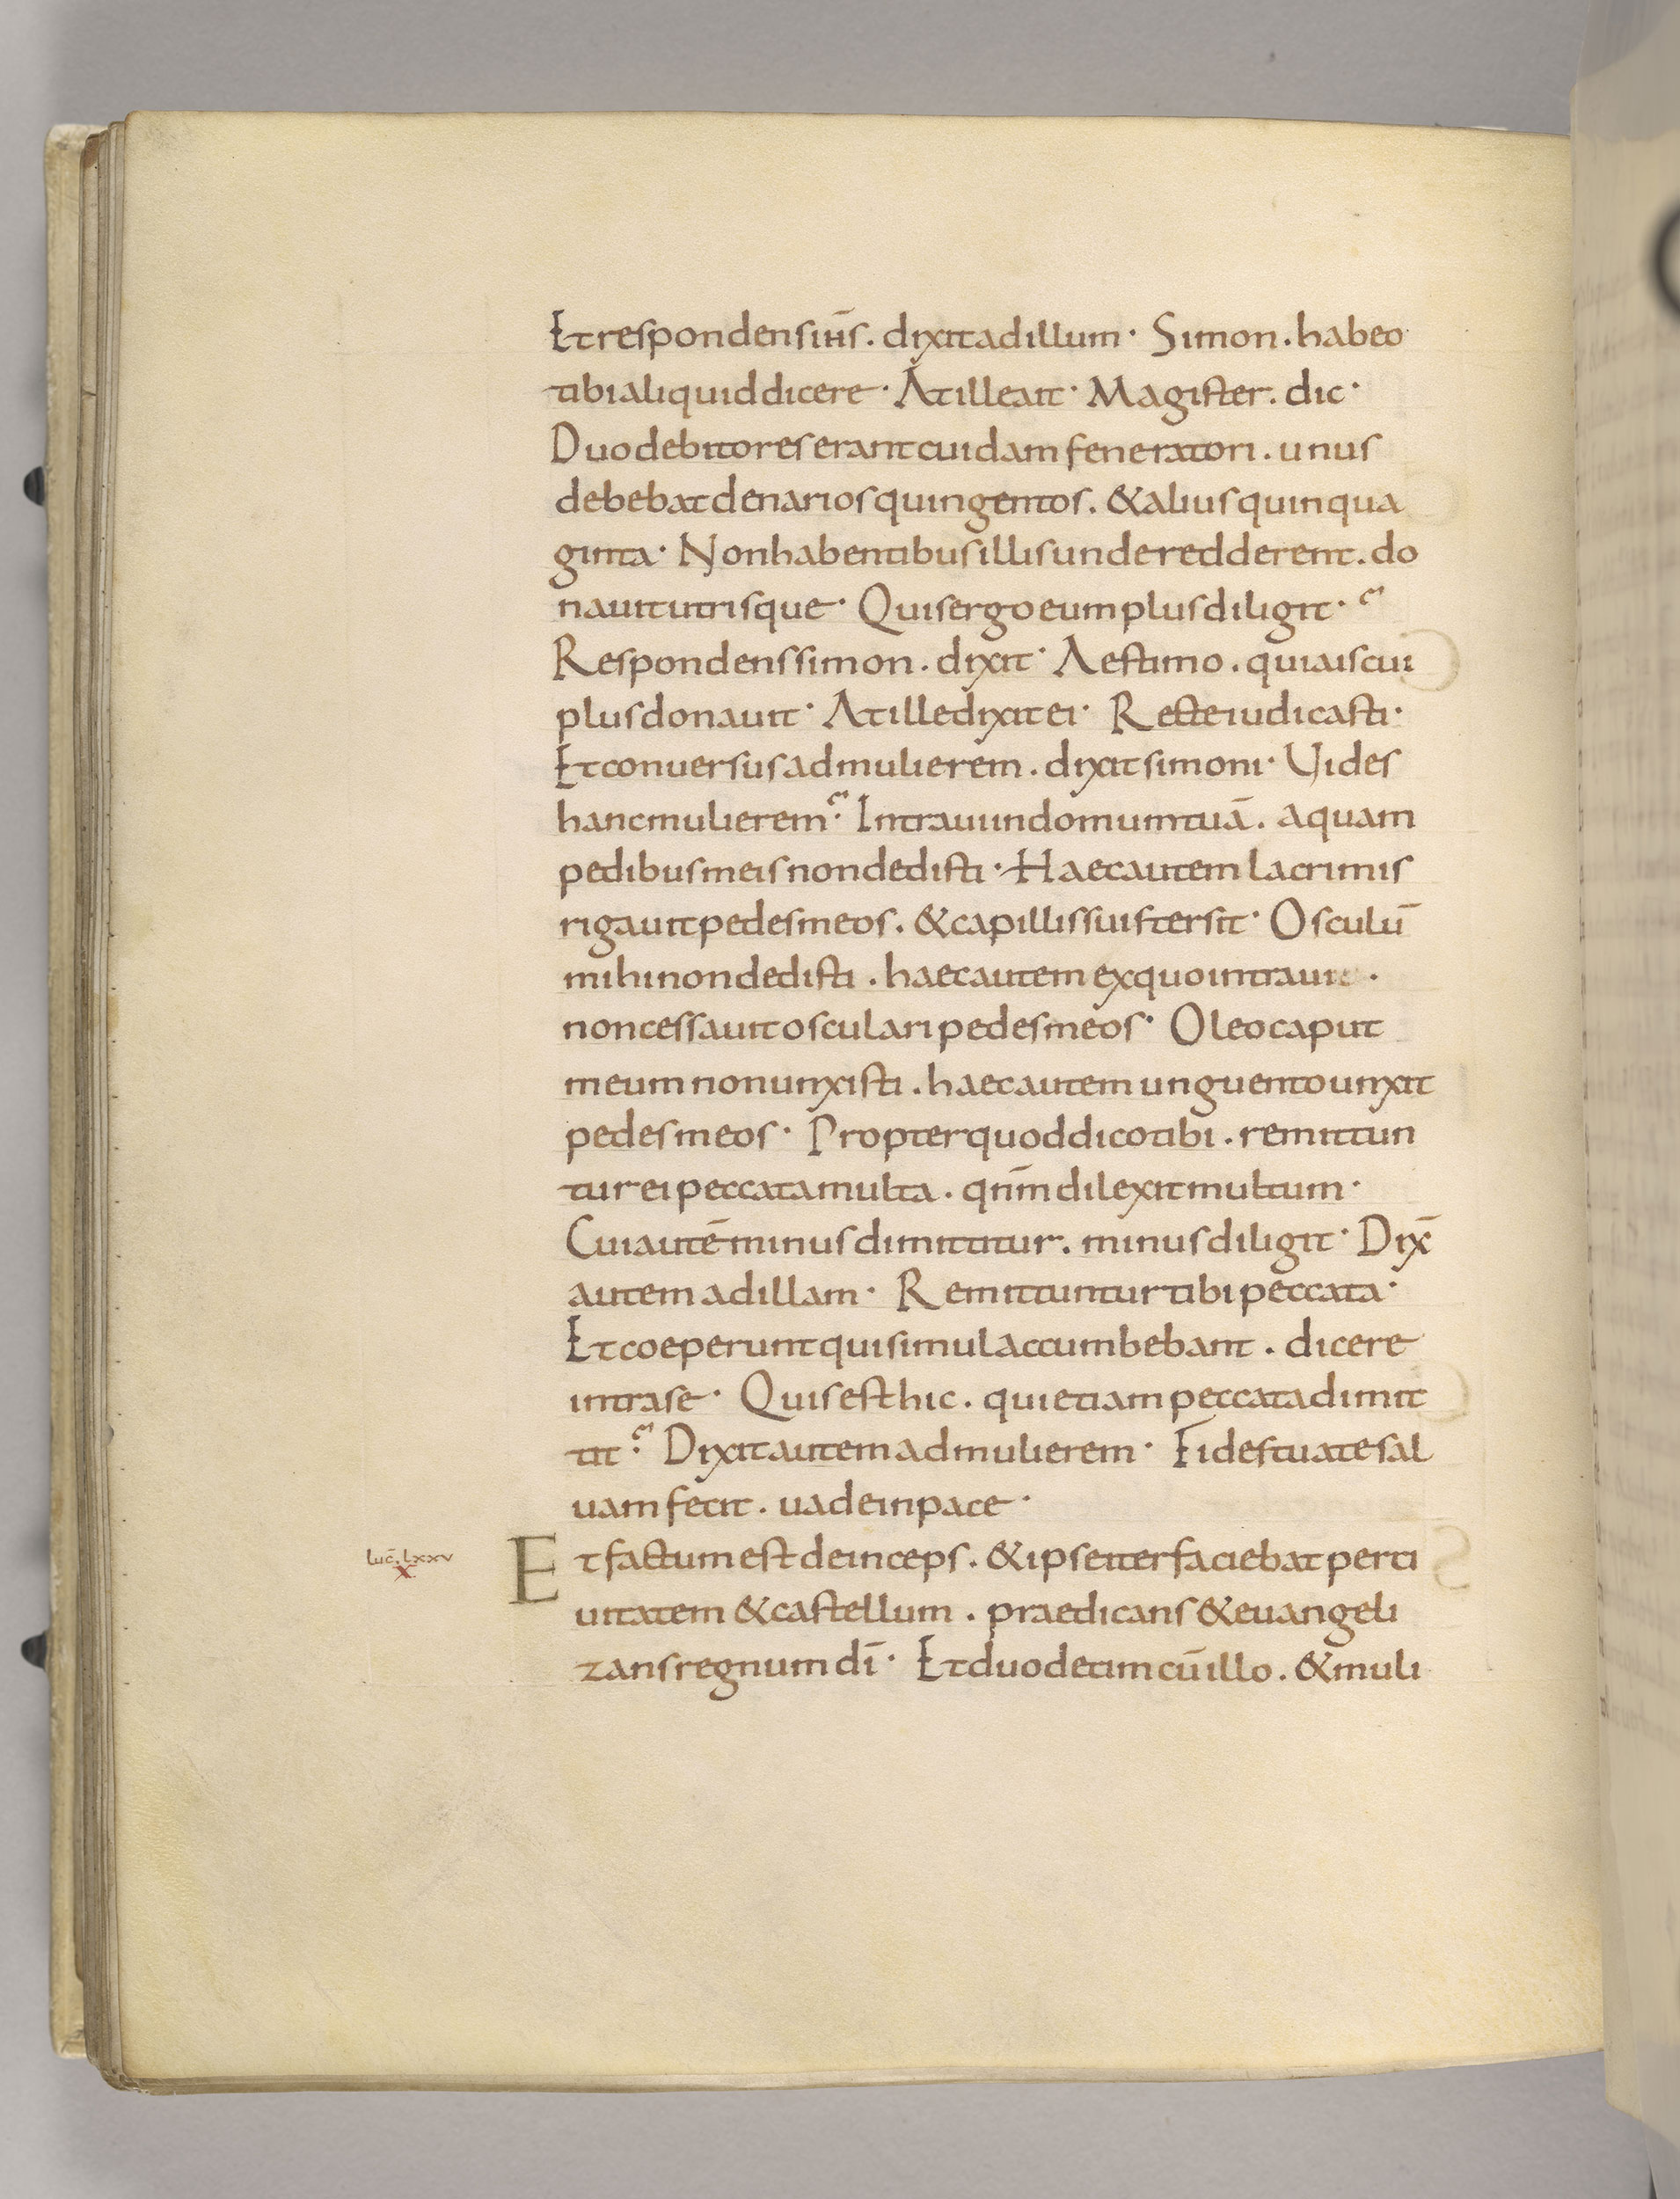 Et respondens ih̅s. dixit ad illum· Simon. habeo
tibi aliquid dicere· At ille ait· Magister. dic·
Duo debitores erant cuidam feneratori. unus
debebat denarios quingentos. & alius quinqua
ginta· Non habentibus illis unde redderent. do
nauit utrisque· Quis ergo eum plus diligit·
Respondens simon. dixit· Aestimo. quia is cui
plus donauit· At ille dixit ei· Recte iudicasti·
Et conuersus ad mulierem. dixit simoni· Uides
hanc mulierem? Intraui in domum tuā. aquam
pedibus meis non dedisti· Haec autem lacrimis
rigauit pedes meos. & capillis suis tersit· Osculū
mihi non dedisti. haec autem ex quo intrauit.
non cessauit osculari pedes meos· Oleo caput
meum non unxisti. haec autem unguento unxit
pedes meos· Propter quod dico tibi. remittun
tur ei peccata multa. qnm̄ dilexit multum·
Cui autē minus dimittitur. minus diligit· Dix̄
autem ad illam· Remittuntur tibi peccata·
Et coeperunt qui simul accumbebant. dicere
intra se· Quis est hic. qui etiam peccata dimit
tit? Dixit autem ad mulierem· Fides tua te sal
uam fecit. uade in pace·
luc̄. lxxv
x
Et factum est deinceps. & ipse iter faciebat per ci
uitatem & castellum. praedicans & euangeli
zans regnum dī· Et duodecim cū illo. & muli